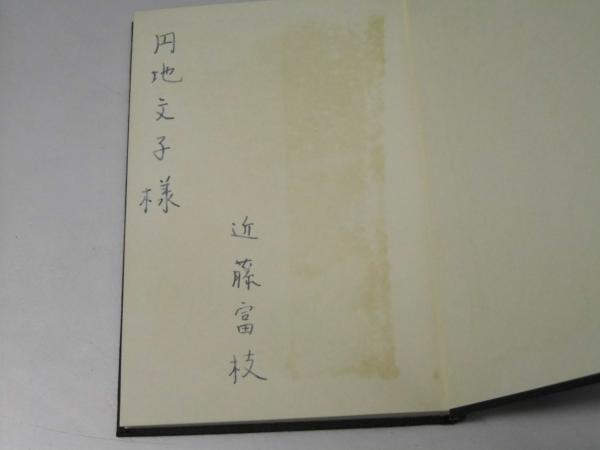 円地文子様
近藤富枝